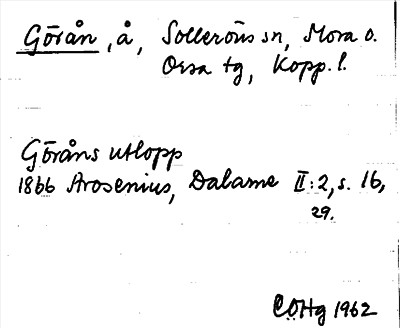 Göran, å, Solleröns sn, Mora o.
Orsa tg, Kopp. l.
Göråns utlopp
1866 Arosenius, Dalarne II:2, s. 16,
29.
CÖHg 1962